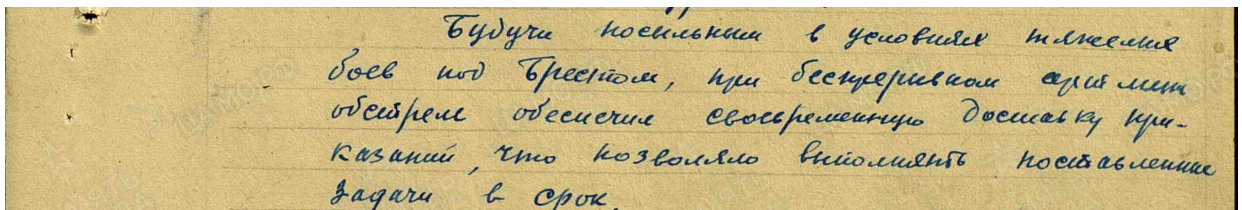 Будучи посыльным в условиях тяжелых
боев под Брестом, при беспрерывном арт мин
обстреле обеспечил своевременную доставку при-
казаний, что позволяло выполнять поставленные
задачи в срок.